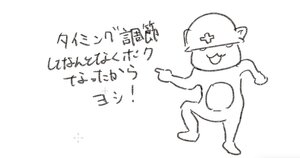 タイミング調節
しなんとなくボク
なったから
ヨシ!